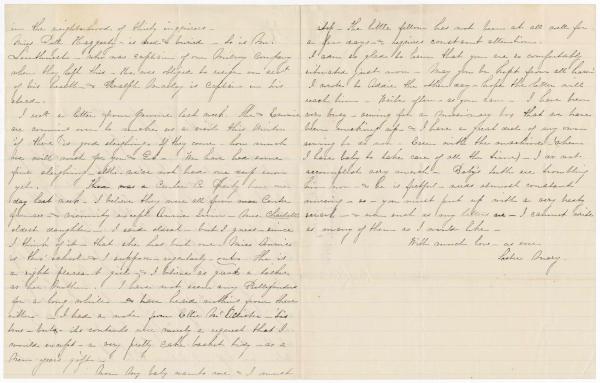 in the neighborhood of thirty engineers.
Miss Patt Haggerty is dead & buried - so is Mr.
who was captain of our Military Company
when they left this - he was obliged to resign on acct
of his health - & is Captain in his
stead.
I rec'd a letter from last week. She &
are coming over to make us a visit this Winter
if there is good sleighing. If they come, how much
we will wish for you & Ed. We have had some
fine sleighing otherwise not had one snow storm
yet. There was a Center Co. Party here one
day last week. I believe they were all from Center
& vicinity except Annie - Mrs.
oldest daughter - I said oldest - but I guess - since
I think of it - that she has but one. Miss Annie
is this school & I suppose - regularly - She is
a right pleasant girl - & I believe as good a teacher
as her brother. I have not seen any
for a long while - & have heard nothing from them
either - I had a note from Ellie
but its contents were merely a request that I
would accept - a very pretty cake basket tidy - as a
New years gift -
Now my baby wants me & I must
- the little fellow has not been at all well for
a few days - & requires constant attention.
I am so glad to hear that you are so comfortably
situated just now - May you be kept from all harm
I wrote to Addie the other day - hope the letter will
reach him - Write often - as you can - I have been
very busy - sewing for a Missionary box that we have
been making up - & I have a great deal of my own
sewing to do now - Even with the machine (when
I have baby to take care of all the time) - I do not
accomplish very much - Baby's teeth are troubling
him now - & he is fretful - needs almost constant
nursing - so - you must put up with a very hasty
scrawl - & such as my letters are - I cannot write
as many of them as I would like -
With much love - as ever